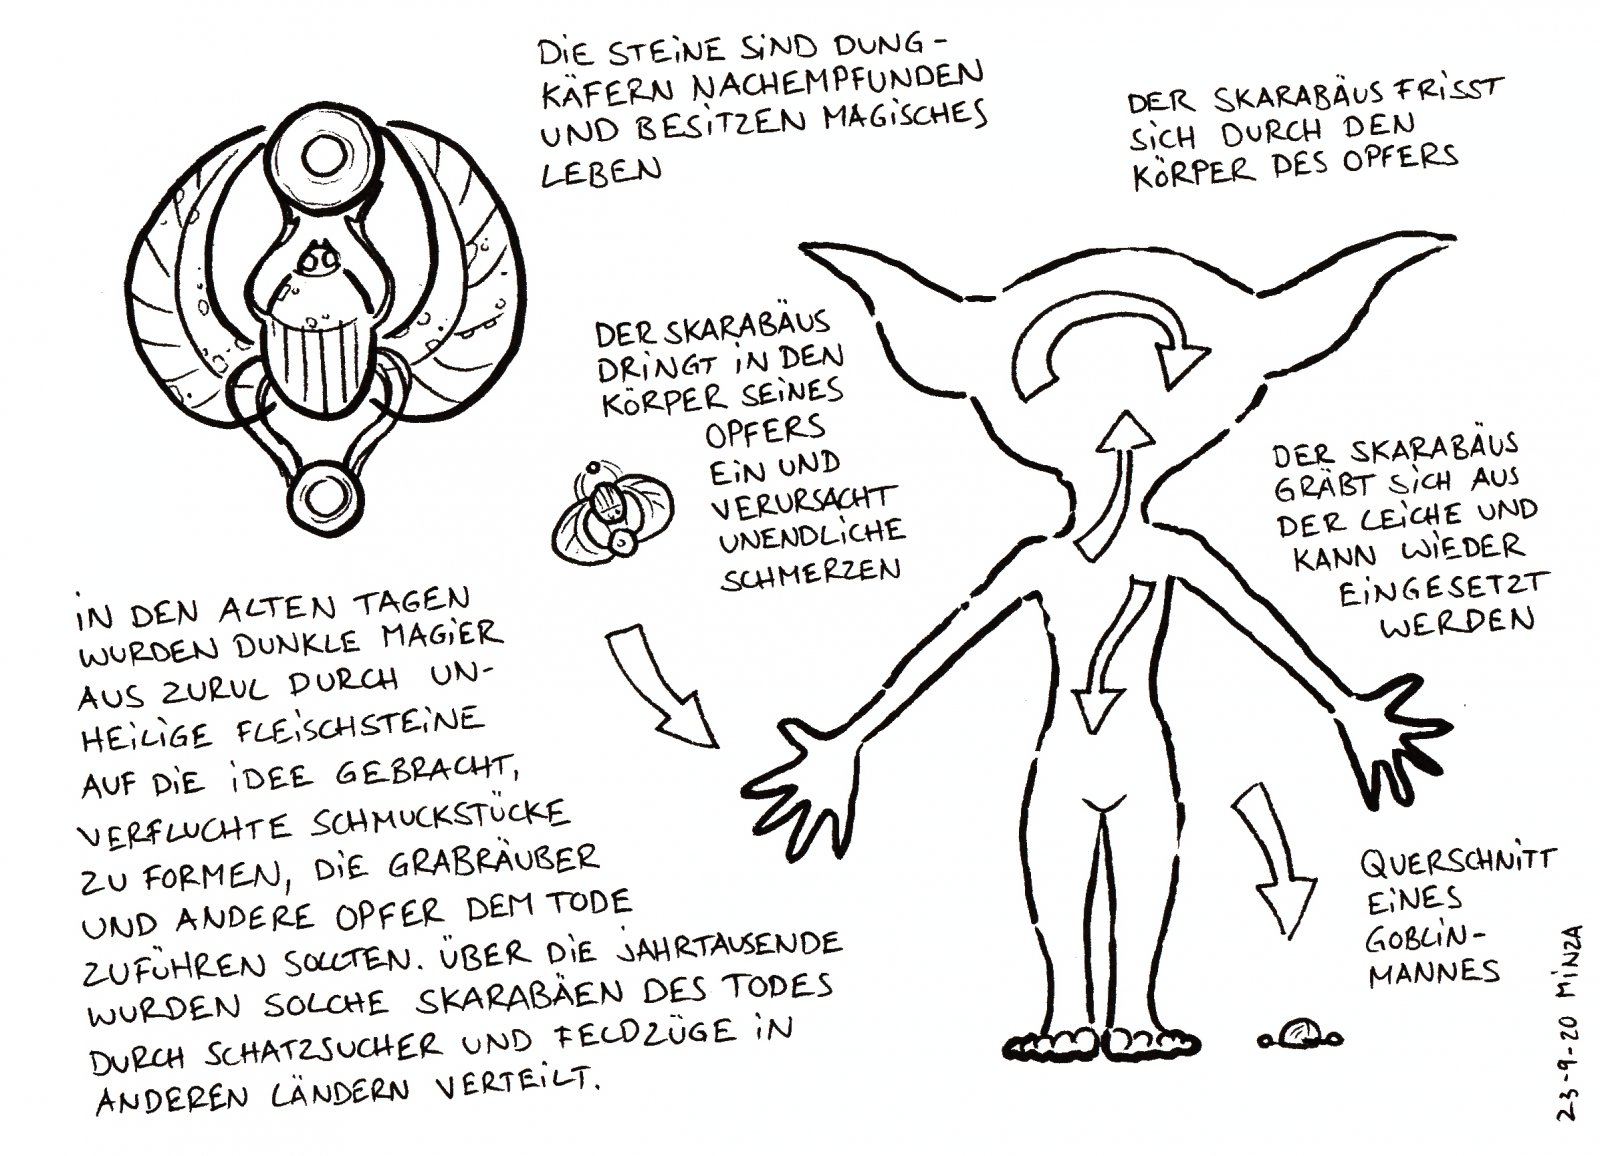 DIE STEINE SIND DUNG-
KÄFERN NACHEMPFUNDEN
UND BESITZEN MAGISCHES
LEBEN
DER SKARABÄUS FRISST
SICH DURCH DEN
KÖRPER DES OPFERS
DER SKARABÄUS
DRINGT IN DEN
KÖRPER SEINES
OPFERS
EIN UND
VERURSACHT
UNENDLICHE
SCHMERZEN
DER SKARABÄUS
GRÄBT SICH AUS
DER LEICHE UND
KANN WIEDER
EINGESETZT
WERDEN
IN DEN ALTEN TAGEN
WURDEN DUNKLE MAGIER
AUS ZURUL DURCH UN-
HEILIGE FLEISCHSTEINE
AUF DIE IDEE GEBRACHT,
VERFLUCHTE SCHMUCKSTÜCKE
ZU FORMEN, DIE GRABRÄUBER
UND ANDERE OPFER DEM TODE
ZUFÜHREN SOLLTEN. ÜBER DIE JAHRTAUSENDE
WURDEN SOLCHE SKARABÄEN DES TODES
DURCH SCHATZSUCHER UND FELDZÜGE IN
ANDEREN LÄNDERN VERTEILT.
QUERSCHNITT
EINES
GOBLIN-
MANNES
23-9-20 MINZA